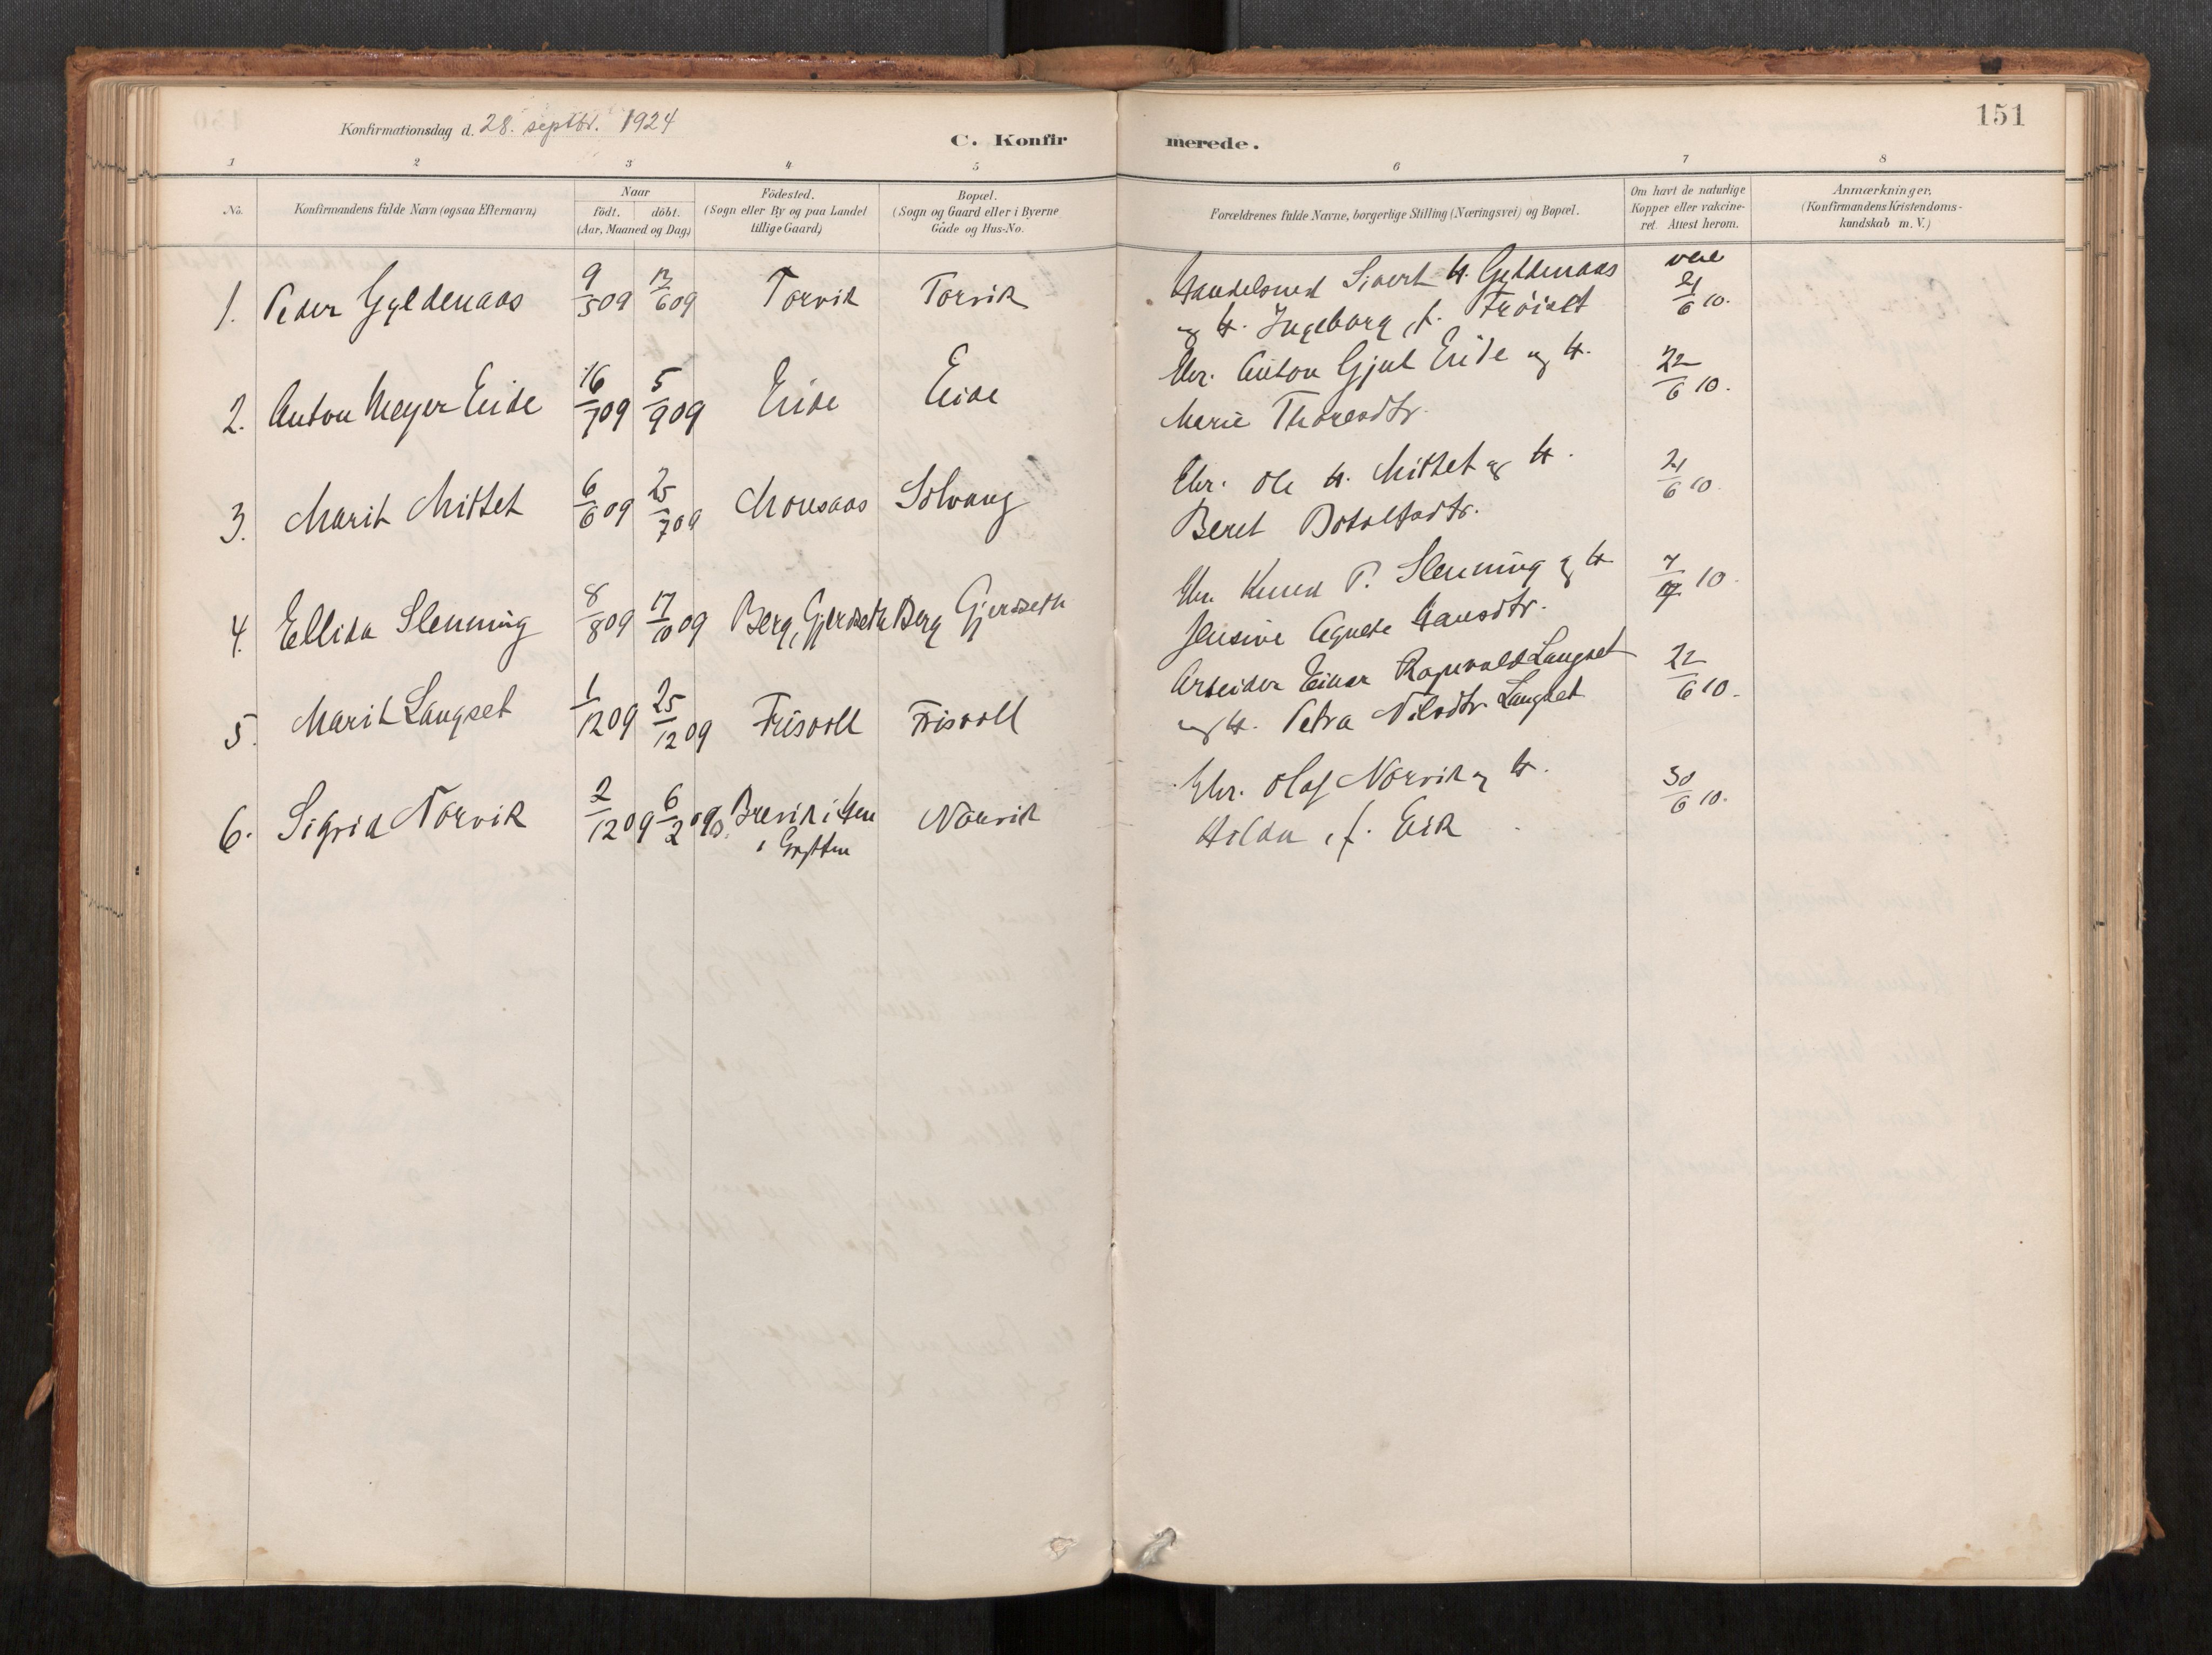 151
Konfirmationsdag d. 28. septbr. 1924
C. Konfir merede.
1 2 3 4 5 6 7 8
No.
Konfirmandens fulde Navn (ogsaa Efternavn)
Naar
födt. döbt.
(Aar, Maaned og Dag)
Födested.
(Sogn eller By og paa Landet
tillige Gaard)
Bopæl.
(Sogn og Gaard eller i Byerne
Gade og Hus-No.
Forældrenes fulde Navne, borgerlige Stilling (Næringsvei) og Bopæl.
Om havt de naturlige
Kopper eller vakcine-
ret. Attest herom.
Anmærkninger.
(Konfirmandens Kristendoms-
kundskab m. V.)
1. Peder Gyldenaas 9/5 09 13/6 09 Torvik Torvik
Handelsmed Sivert H. Gyldenaas
og H. Ingeborg, f. Fröiset
21/6 10.
2. Anton Meyer Eide 16/7 09 5/9 09 Eide Eide
Gbr. Anton Gjul Eide og H.
Marie Thoresdtr.
22/6 10.
3. Marit Mittet 6/6 09 25/7 09 Monsaas Solvang
Gbr. Ole H. Mittet og H.
Beret Botolfsdtr.
21/6 10.
4. Ellida Slenning 8/8 09 17/10 09 Berg, Gjerdseth Berg Gjerdseth
Gbr. Knud P. Slenning og H
Jensine Agnete Hansdtr.
7/7 10.
5. Marit Langset 1/12 09 25/12 09 Frisvoll Frisvoll
Arbeider Einar Ragnvald Langset
og H. Petra Nilsdtr. Langset
22/6 10.
6. Sigrid Norvik 2/12 09 6/2 Brevik i Hen Norvik
i Grytten
Gbr. Olaf Norvik og H.
Hilda, f. Eik
30/6 10.